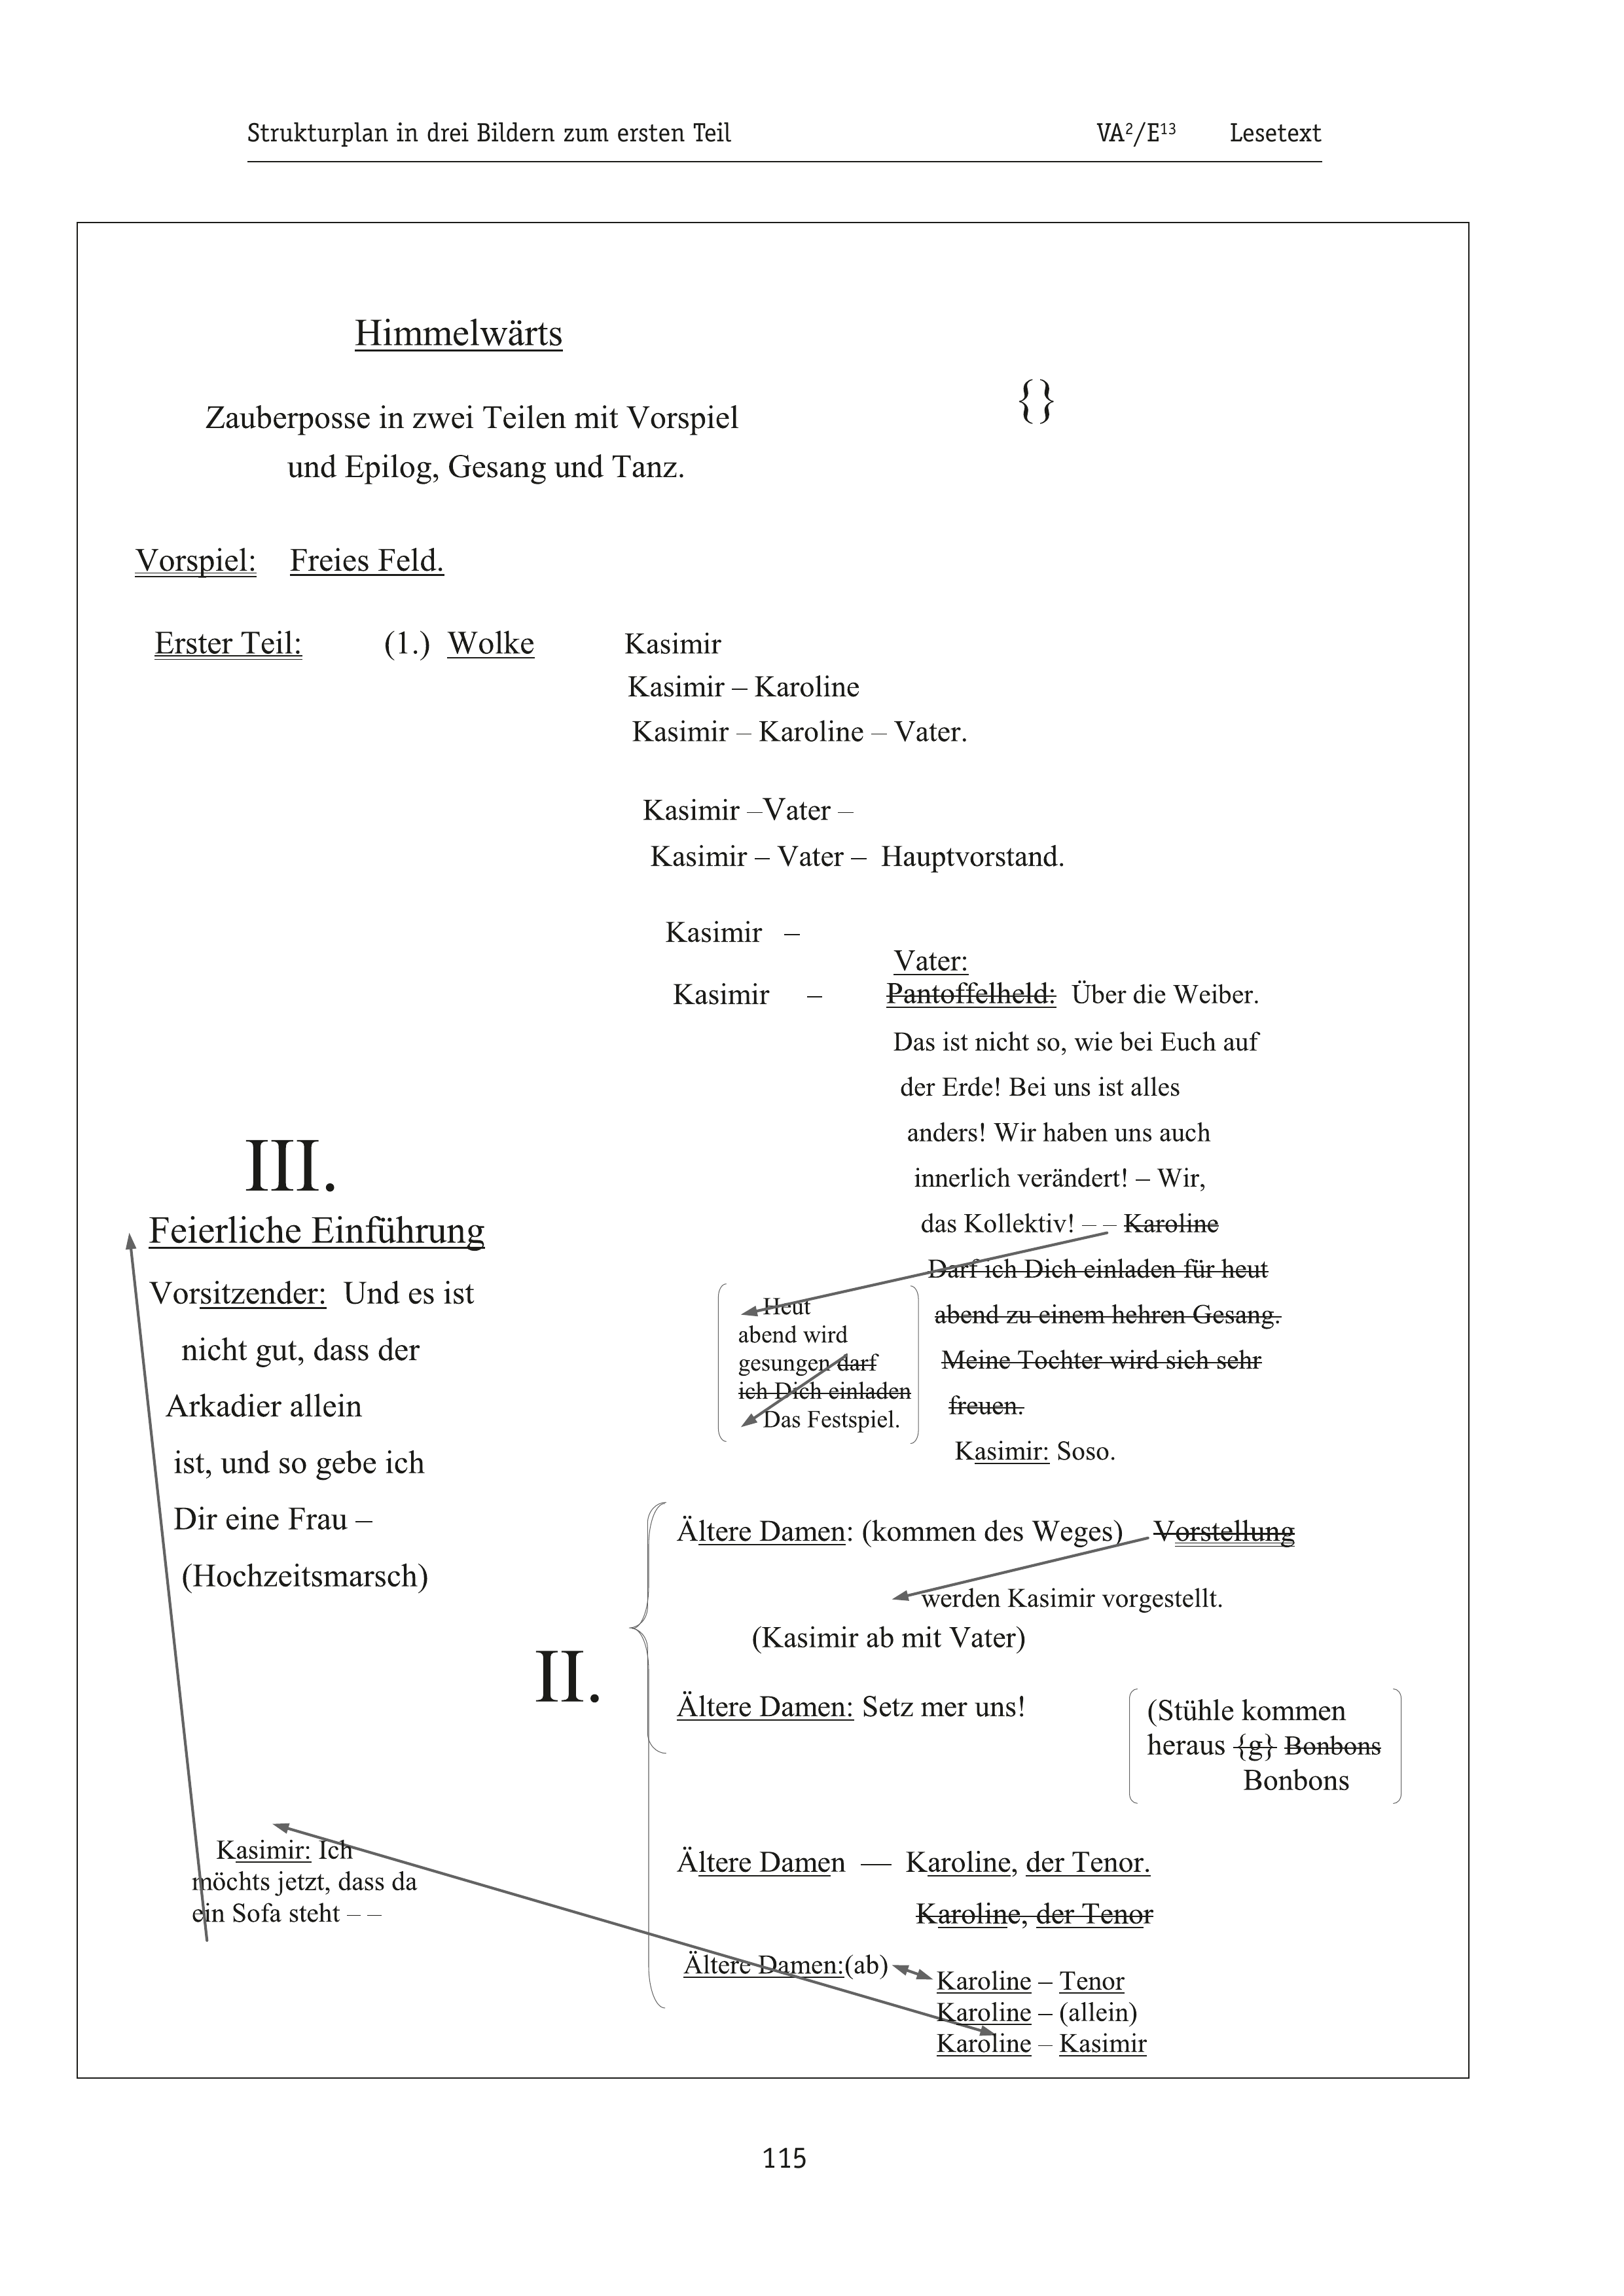 Strukturplan in drei Bildern zum ersten Teil VA²/E¹³ Lesetext
Himmelwärts
{}
Zauberposse in zwei Teilen mit Vorspiel
und Epilog, Gesang und Tanz.
Vorspiel: Freies Feld.
Erster Teil: (1.) Wolke Kasimir
Kasimir – Karoline
Kasimir – Karoline – Vater.
Kasimir –Vater –
Kasimir – Vater – Hauptvorstand.
Kasimir –
Vater:
Kasimir – Pantoffelheld: Über die Weiber.
Das ist nicht so, wie bei Euch auf
der Erde! Bei uns ist alles
anders! Wir haben uns auch
innerlich verändert! – Wir,
das Kollektiv! – – Karoline
Darf ich Dich einladen für heut
abend zu einem hehren Gesang.
Meine Tochter wird sich sehr
freuen.
Kasimir: Soso.
Heut
abend wird
gesungen darf
ich Dich einladen
Das Festspiel.
III.
Feierliche Einführung
Vorsitzender: Und es ist
nicht gut, dass der
Arkadier allein
ist, und so gebe ich
Dir eine Frau –
(Hochzeitsmarsch)
II.
Ältere Damen: (kommen des Weges) Vorstellung
werden Kasimir vorgestellt.
(Kasimir ab mit Vater)
Ältere Damen: Setz mer uns!
(Stühle kommen
heraus {g} Bonbons
Bonbons
Kasimir: Ich
möchts jetzt, dass da
ein Sofa steht – –
Ältere Damen — Karoline, der Tenor.
Karoline, der Tenor
Ältere Damen:(ab)
Karoline – Tenor
Karoline – (allein)
Karoline – Kasimir
115